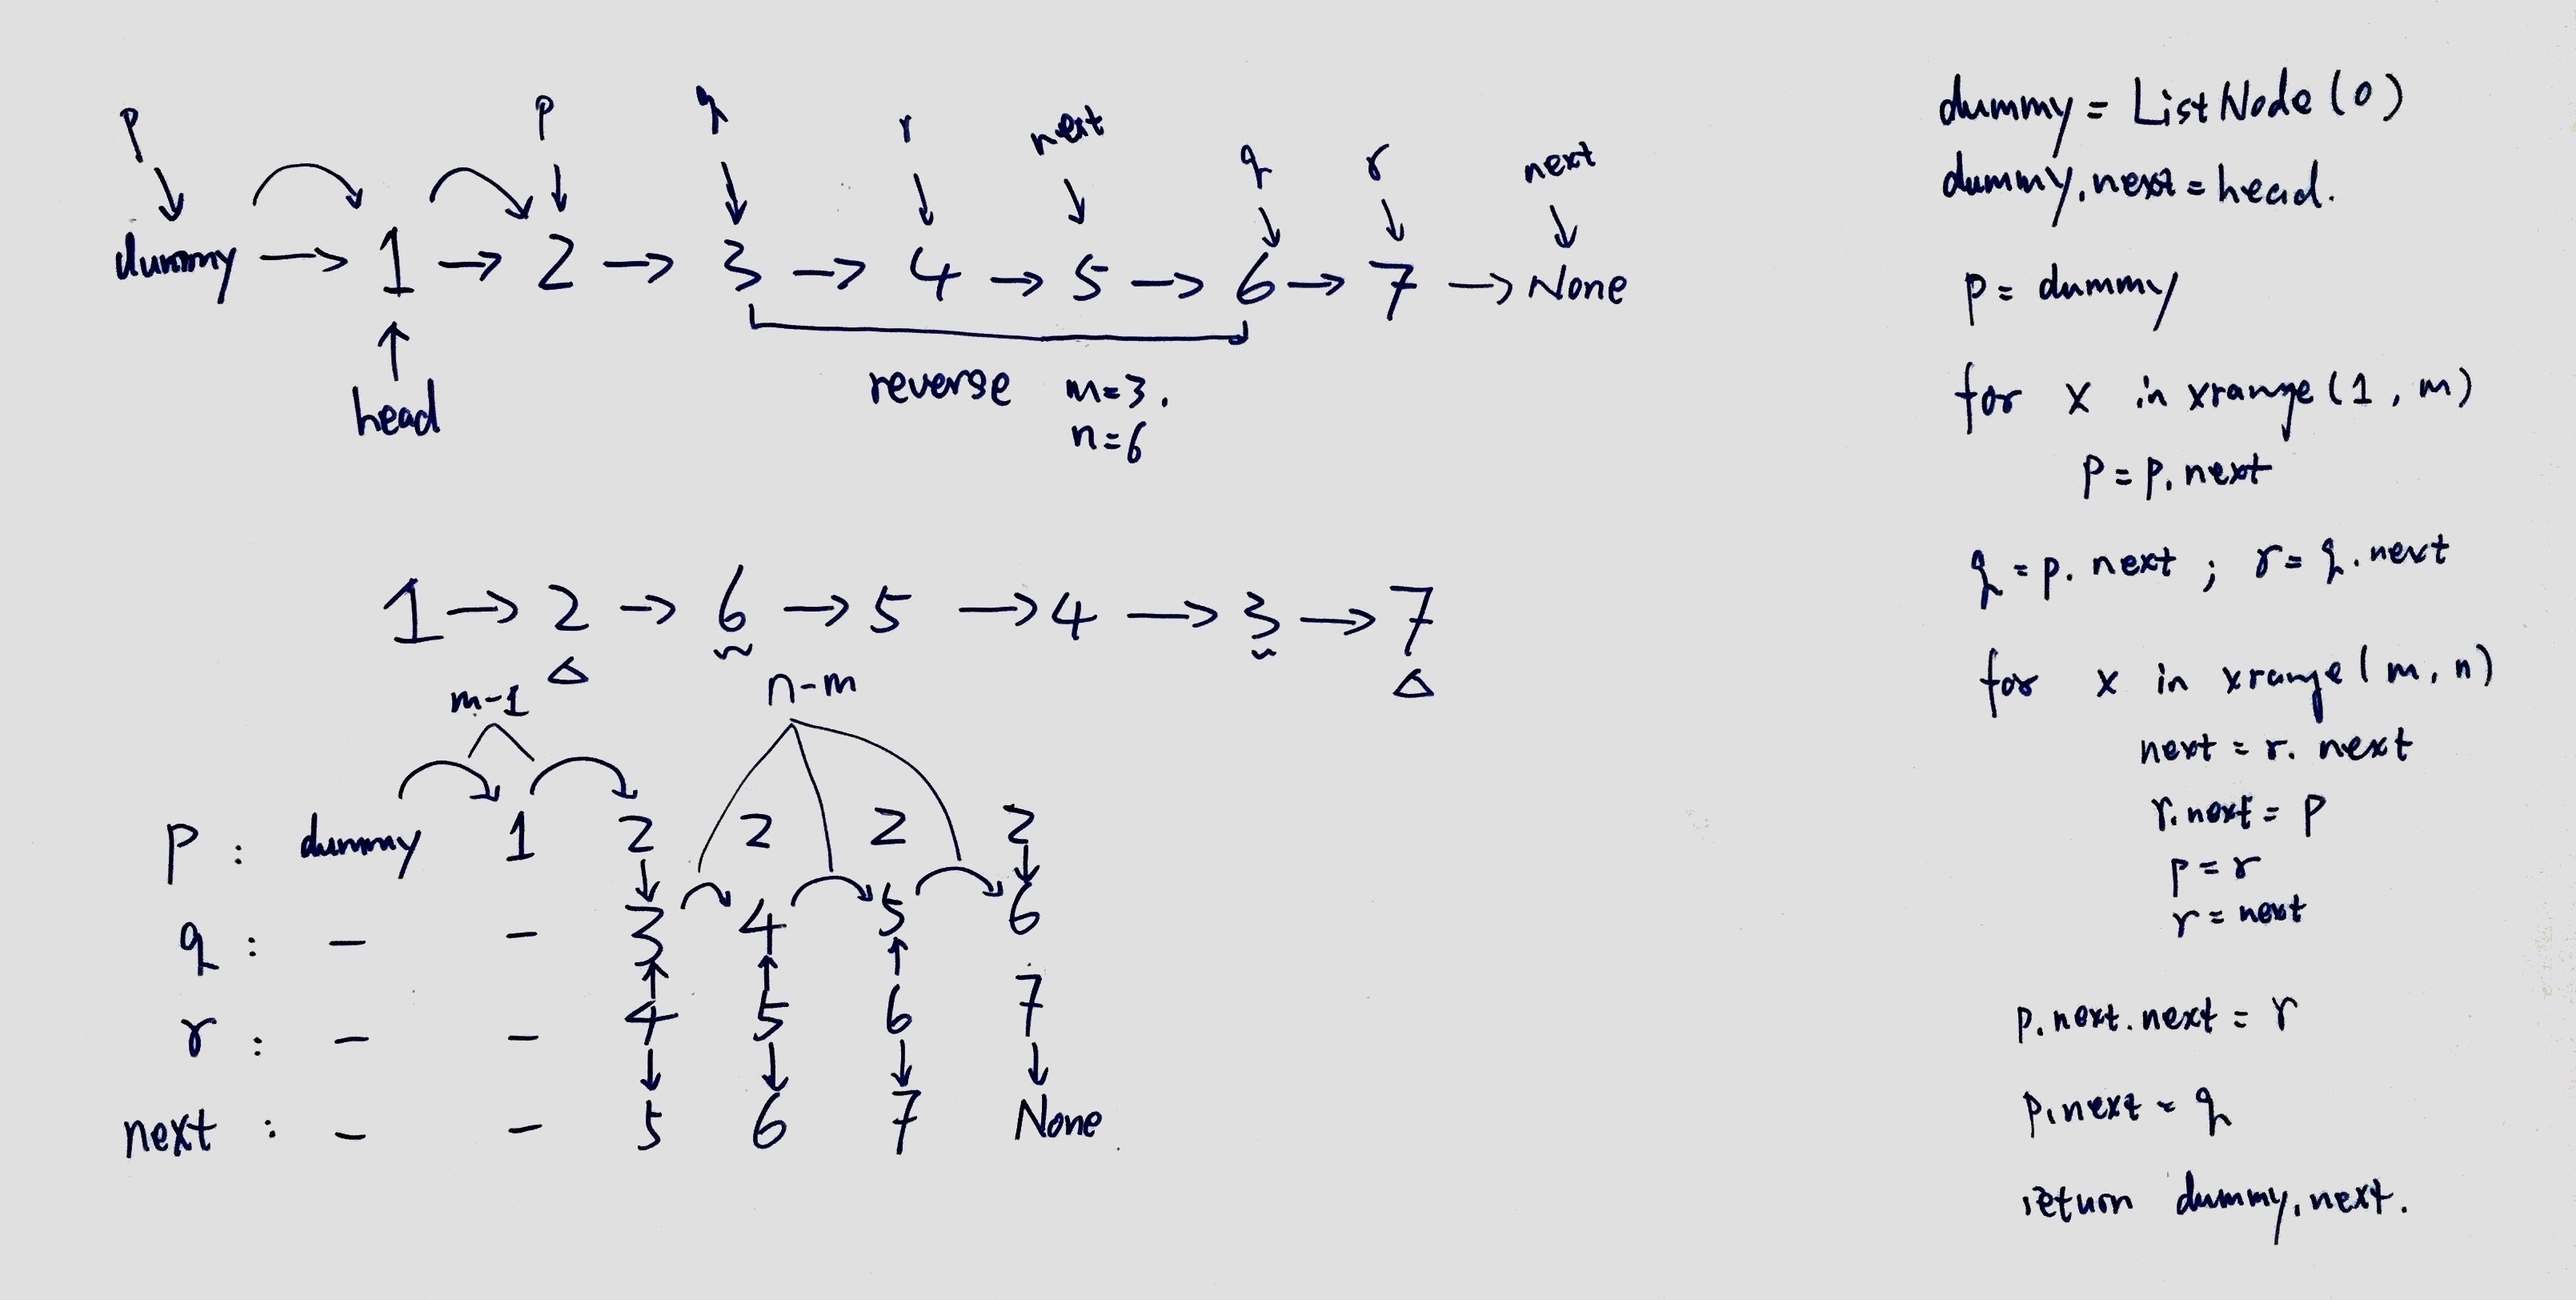 p p q r next q r next
dummy → 1 → 2 → 3 → 4 → 5 → 6 → 7 → None
head
reverse m=3.
n=6
1 → 2 → 6 → 5 → 4 → 3 → 7
m-1 n-m
p : dummy 1 2 2 2 2
q : - - 3 4 5 6
r : - - 4 5 6 7
next : - - 5 6 7 None
dummy = ListNode(0)
dummy.next = head.
p = dummy
for x in xrange(1, m)
p = p.next
q = p.next ; r = q.next
for x in xrange(m, n)
next = r.next
r.next = p
p = r
r = next
p.next.next = r
p.next = q
return dummy.next.